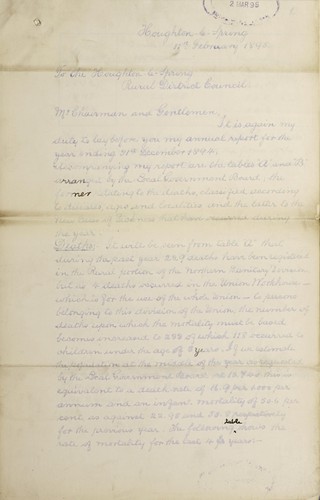 2 MAR 96
Houghton le Spring
February 189
To the Houghton le Spring
Rural District Council
Mr Chairman and Gentlemen,
It is again my
duty to lay before you my annual report for the
year ending 31st December 1895.
Accompanying my report are the tables A and B
arranged by the Local Government Board, the
former relating to the deaths, classified according
to diseases, ages and localities and the latter to the
new cases of sickness
the year.
Deaths. It will be seen from table A that
during the past year 229 deaths have been registered
in the Rural portion of the Northern Sanitary Division
but as 4 deaths occurred in the Union Workhouse
which is for the use of the whole Union to persons
belonging to this division of the Union, the number of
deaths upon which the mortality must be based
becomes increased to 233 of which 117 occurred to
children under the age of 5 years. If we estimate
the population at the middle of the year as
by the Local Government Board at
equivalent to a death rate of per 1000 per
annum and an infant mortality of per
cent as against and respectively
for the previous year. The following table shows the
rate of mortality for the last years:-